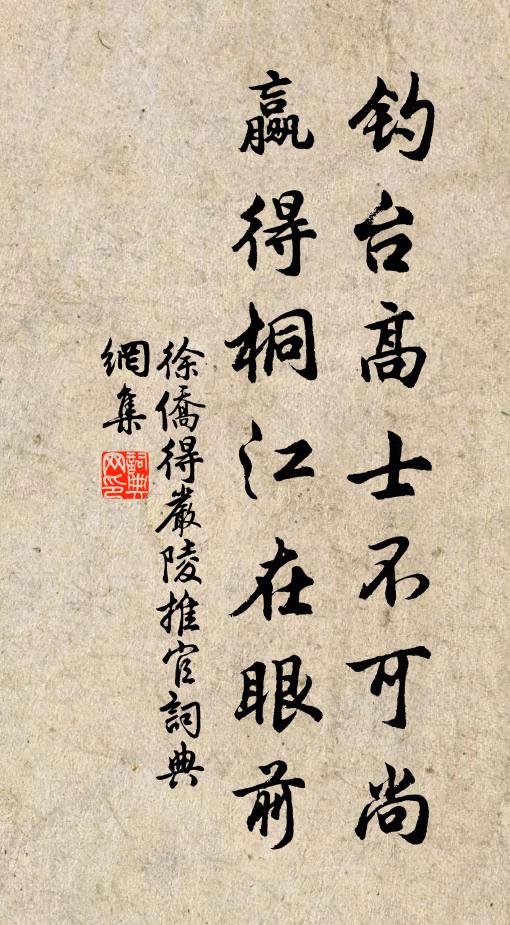 钓台高士不可尚
赢得桐江在眼前
徐僑得嚴陵推官詞典
網集
詞典
网印